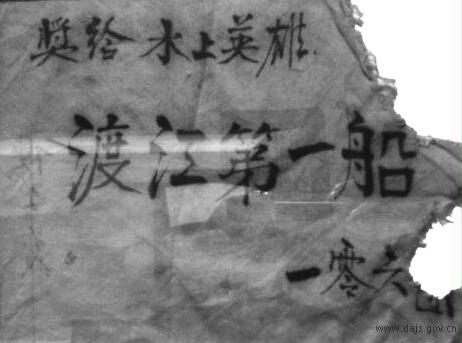 奬给水上英雄.
渡江第一船
一零六
www.dajs.gov.cn